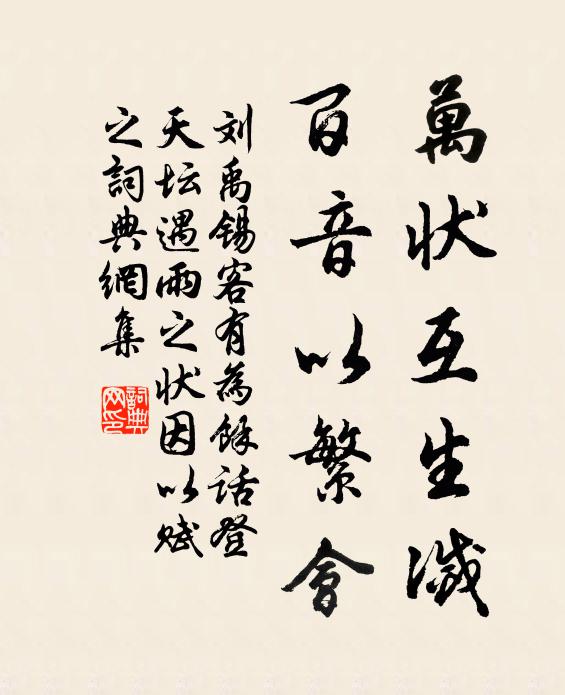 萬狀互生滅
百音以繁會
刘禹锡客有為餘话登
天坛遇雨之状因以赋
之詞典網集
詞典网印